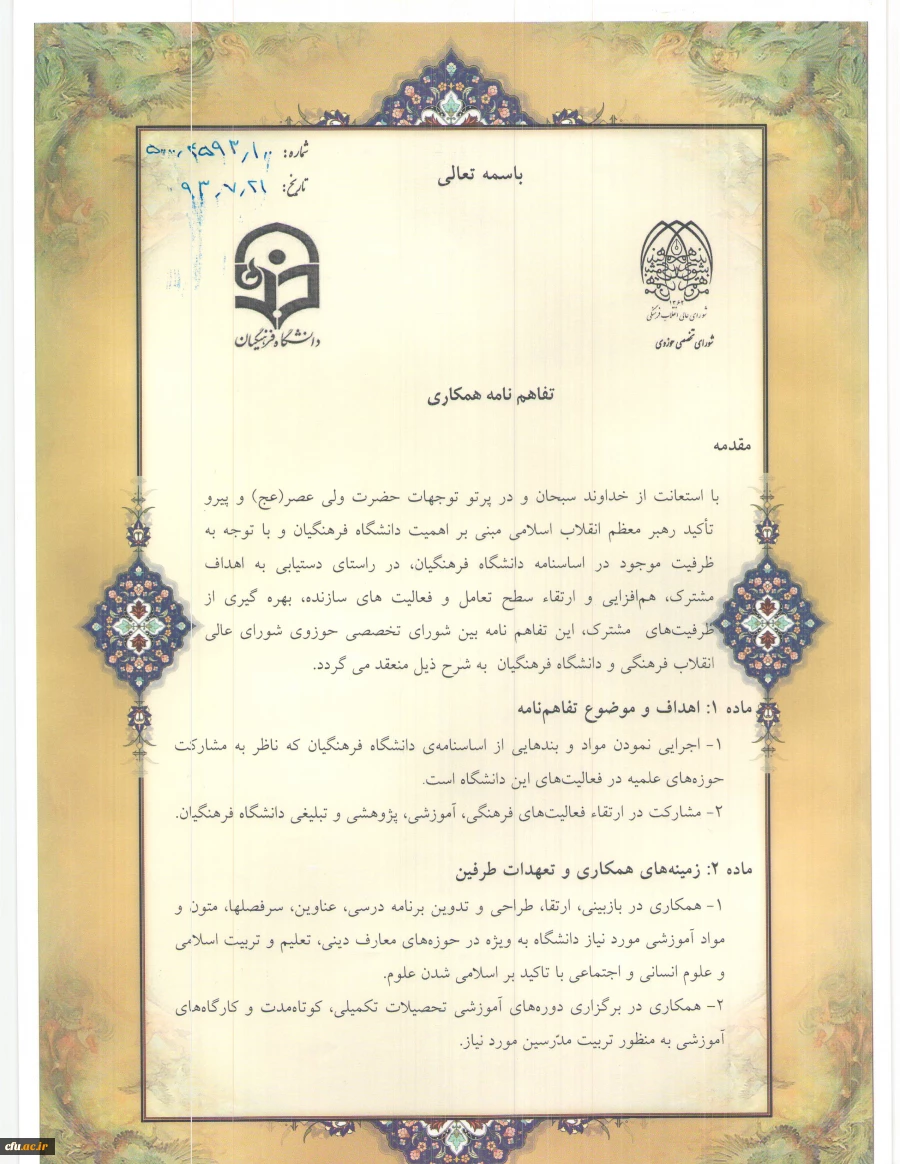 باسمه تعالی
شماره:
تاریخ: ۹۳٫۷٫۲۱
۱۳۶۳
شورای عالی انقلاب فرهنگی
شورای تخصصی حوزوی
دانشگاه فرهنگیان
تفاهم نامه همکاری
مقدمه
با استعانت از خداوند سبحان و در پرتو توجهات حضرت ولی عصر(عج) و پیرو
تأکید رهبر معظم انقلاب اسلامی مبنی بر اهمیت دانشگاه فرهنگیان و با توجه به
ظرفیت موجود در اساسنامه دانشگاه فرهنگیان، در راستای دستیابی به اهداف
مشترک، هم‌افزایی و ارتقاء سطح تعامل و فعالیت های سازنده، بهره گیری از
ظرفیت‌های مشترک، این تفاهم نامه بین شورای تخصصی حوزوی شورای عالی
انقلاب فرهنگی و دانشگاه فرهنگیان به شرح ذیل منعقد می گردد.
ماده ۱: اهداف و موضوع تفاهم‌نامه
۱- اجرایی نمودن مواد و بندهایی از اساسنامه‌ی دانشگاه فرهنگیان که ناظر به مشارکت
حوزه‌های علمیه در فعالیت‌های این دانشگاه است.
۲- مشارکت در ارتقاء فعالیت‌های فرهنگی، آموزشی، پژوهشی و تبلیغی دانشگاه فرهنگیان.
ماده ۲: زمینه‌های همکاری و تعهدات طرفین
۱- همکاری در بازبینی، ارتقا، طراحی و تدوین برنامه درسی، عناوین، سرفصلها، متون و
مواد آموزشی مورد نیاز دانشگاه به ویژه در حوزه‌های معارف دینی، تعلیم و تربیت اسلامی
و علوم انسانی و اجتماعی با تاکید بر اسلامی شدن علوم.
۲- همکاری در برگزاری دوره‌های آموزشی تحصیلات تکمیلی، کوتاه‌مدت و کارگاه‌های
آموزشی به منظور تربیت مدّرسین مورد نیاز.
cfu.ac.ir